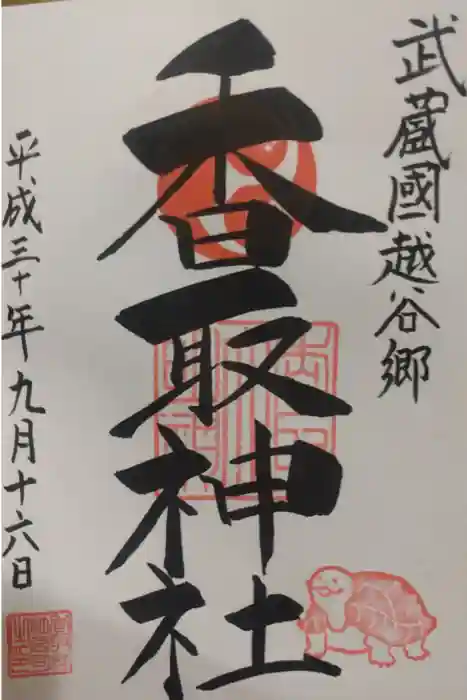 武蔵國越谷郷
香取神社
平成三十年九月十六日